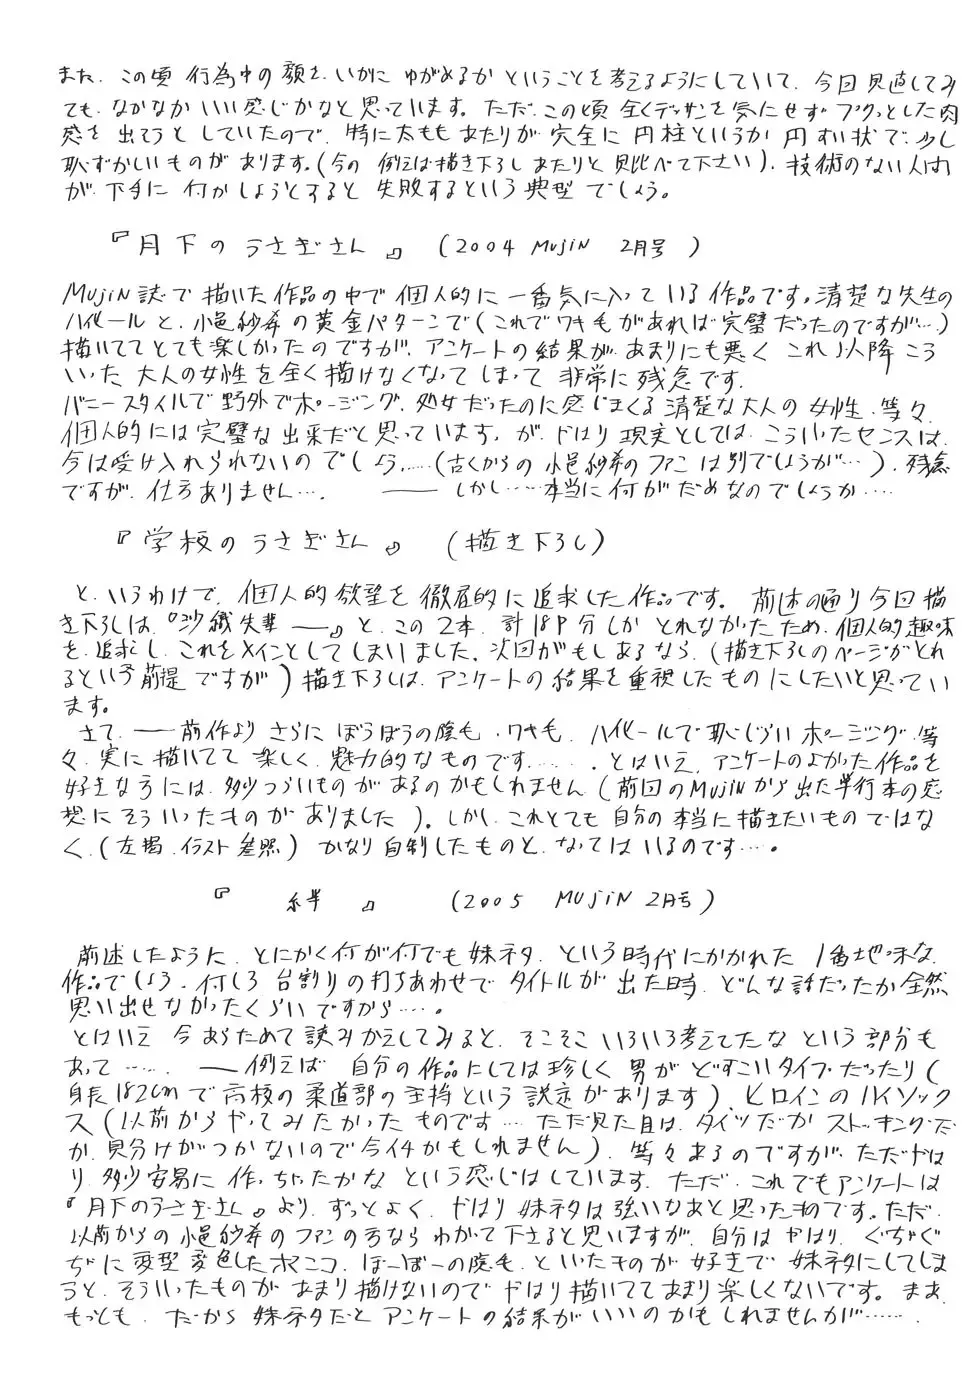 また、この頃 行為中の顔を、いかに ゆがめるか ということを考えるようにしていて、今回見直してみ
ても、なかなかいい感じかなと思っています。ただ、この頃 全くデッサンを気にせず プクッとした肉
感を 出そうと していたので、特に太ももあたりが 完全に 円柱というか 円すい状で、少し
恥ずかしいものがあります。(今の 例えば描き下ろし あたりと 見比べて下さい)、技術のない人間
が、下手に 何かしようとすると 失敗するという 典型 でしょう。
『月下の うさぎさん 』 (2004 MUJIN 2月号 )
MUJIN誌で 描いた 作品の中で 個人的に 一番気に入っている作品です。清楚な先生の
ハイヒールと、小邑紗希の黄金パターンで(これでワキ毛があれば完璧だったのですが…)
描いててとても楽しかったのですが、アンケートの結果が、あまりにも悪く これ以降 こう
いった 大人の女性を全く描けなくなってしまって 非常に残念です。
バニースタイルで野外でポージング、処女だったのに感じまくる清楚な大人の女性、等々、
個人的には完璧な出来だと思っています、が、やはり現実としては、こういったセンスは、
今は受け入れられないのでしょう……(古くからの小邑紗希のファンは別でしょうが…)、残念
ですが、仕方ありません…。 ―― しかし……本当に何がだめなのでしょうか……
『学校の うさぎさん 』 (描き下ろし)
と、いうわけで、個人的欲望を徹底的に追求した作品です。前述の通り今回描
き下ろしは、『沙織先輩 ―』と、この2本、計18P分しか とれなかったため、個人的趣味
を、追求し、これをメインとしてしまいました。次回がもしあるなら、(描き下ろしのページがとれ
るという前提 ですが)描き下ろしは、アンケートの結果を重視したものにしたいと思ってい
ます。
さて、―― 前作より さらに ぼうぼうの陰毛、ワキ毛、ハイヒールで恥じらい ポージング、等
々、実に描いてて楽しく、魅力的なものです……。とはいえ、アンケートのよかった作品を
好きな方には、多少つらいものがあるのかもしれません(前回のMUJINから出た単行本の感
想にそういったものがありました)。しかし、これとても 自分の本当に描きたいもの ではな
く、(左掲、イラスト参照) かなり自制したものと、なってはいるのです…。
『 絆 』 (2005 MUJIN 2月号)
前述したように、とにかく何が何でも妹ネタ、という時代にかかれた 1番地味な、
作品でしょう。何しろ 台割りの打ちあわせで タイトルが 出た時、どんな話だったか全然
思い出せなかったくらいですから…。
とはいえ 今あらためて読みかえしてみると、そこそこ いろいろ考えてたな という部分も
あって……。―― 例えば 自分の作品にしては珍しく 男が どすこいタイプだったり(
身長182cmで高校の柔道部の主将という設定があります)、ヒロインのハイソック
ス(以前からやってみたかったものです… ただ見た目は、タイツだか ストッキングだ
か、見分けがつかないので今イチかもしれません)、等々あるのですが、ただやは
り、多少安易に作っちゃったかな という感じはしています。ただ、これでもアンケートは
『月下のうさぎさん』より、ずっとよく、やはり 妹ネタは強いなあと思ったものです。ただ、
以前からの 小邑紗希のファンの方なら わかって下さると思いますが、自分は やはり、ぐちゃぐ
ちゃに 変型変色した、ほーぼーの陰毛、といったものが 好きで 妹ネタにしてしま
うと、そういったものが あまり描けないので やはり描いててあまり楽しくないです。まあ、
もっとも、だから 妹ネタだと アンケートの結果がいいのかもしれませんが……。